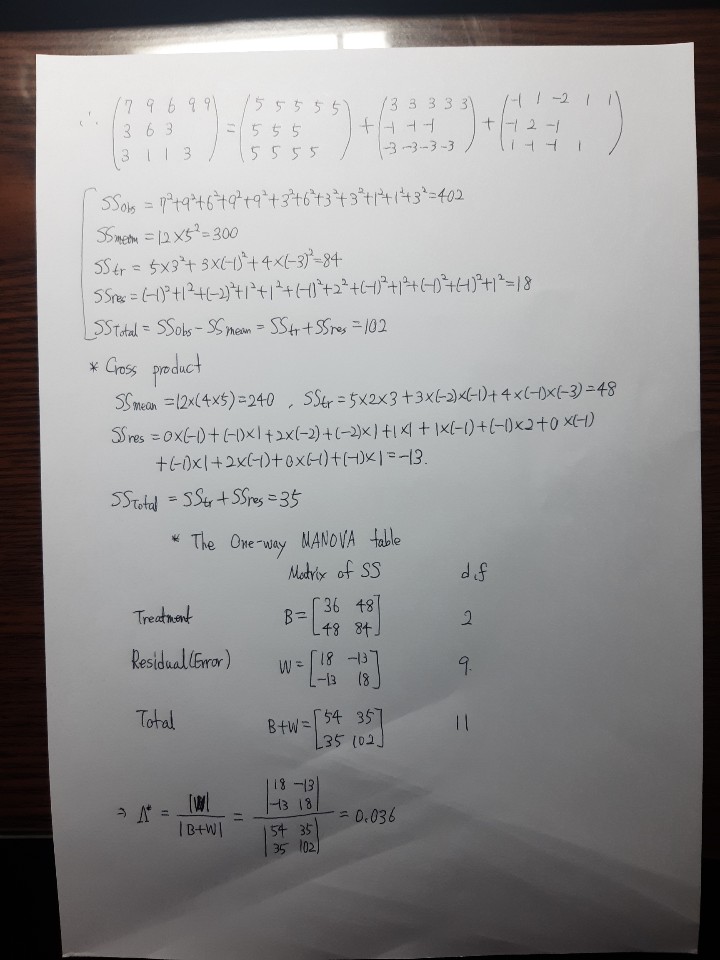 ∴ (7 9 6 9 9) = (5 5 5 5 5) + (3 3 3 3 3) + (-1 1 -2 1 1)
(3 6 3) (5 5 5) (-1 -1 -1) (-1 2 -1)
(3 1 1 3) (5 5 5 5) (-3 -3 -3 -3) (1 -1 -1 1)
SSobs = 7²+9²+6²+9²+9²+3²+6²+3²+3²+1²+1²+3²=402
SSmean = 12×5²=300
SStr = 5×3²+3×(-1)²+4×(-3)²=84
SSres = (-1)²+1²+(-2)²+1²+1²+(-1)²+2²+(-1)²+1²+(-1)²+(-1)²+1²=18
SSTotal = SSobs - SSmean = SStr + SSres = 102
* Cross product
SSmean = 12×(4×5)=240 , SStr = 5×2×3+3×(-2)×(-1)+4×(-1)×(-3)=48
SSres = 0×(-1)+(-1)×1+2×(-2)+(-2)×1+1×1+1×(-1)+(-1)×2+0×(-1)
+(-1)×1+2×(-1)+0×(-1)+(-1)×1=-13.
SSTotal = SStr + SSres = 35
* The One-way MANOVA table
Matrix of SS d.f
Treatment B = [36 48
48 84] 2
Residual(Error) W = [18 -13
-13 18] 9.
Total B+W = [54 35
35 102] 11
⇒ Λ* = |W| / |B+W| = |18 -13
-13 18| / |54 35
35 102| = 0.036